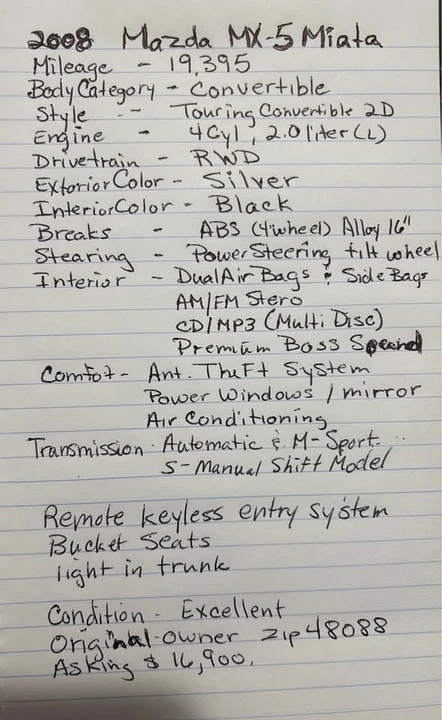 2008 Mazda MX-5 Miata
Mileage - 19,395
Body Category - Convertible
Style -- Touring Convertible 2D
Engine - 4 Cyl, 2.0 liter (L)
Drivetrain - RWD
Exterior Color - Silver
Interior Color - Black
Breaks - ABS (4 wheel) Alloy 16"
Stearing - Power Steering tilt wheel
Interior - Dual Air Bags & Side Bags
AM/FM Stero
CD/MP3 (Multi Disc)
Premium Boss Sound
Comfot - Ant. Theft System
Power Windows / mirror
Air Conditioning
Transmission - Automatic & M-Sport
S-Manual Shift Model
Remote keyless entry system
Bucket Seats
light in trunk
Condition - Excellent
Original-owner zip 48088
Asking $ 16,900.